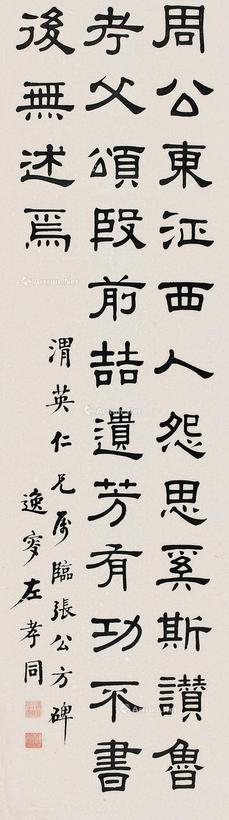 周公東征西人怨思奚斯讃魯
考父頌殷前喆遺芳有功不書
後無述焉
渭英仁兄屬臨張公方碑
逸叟左孝同